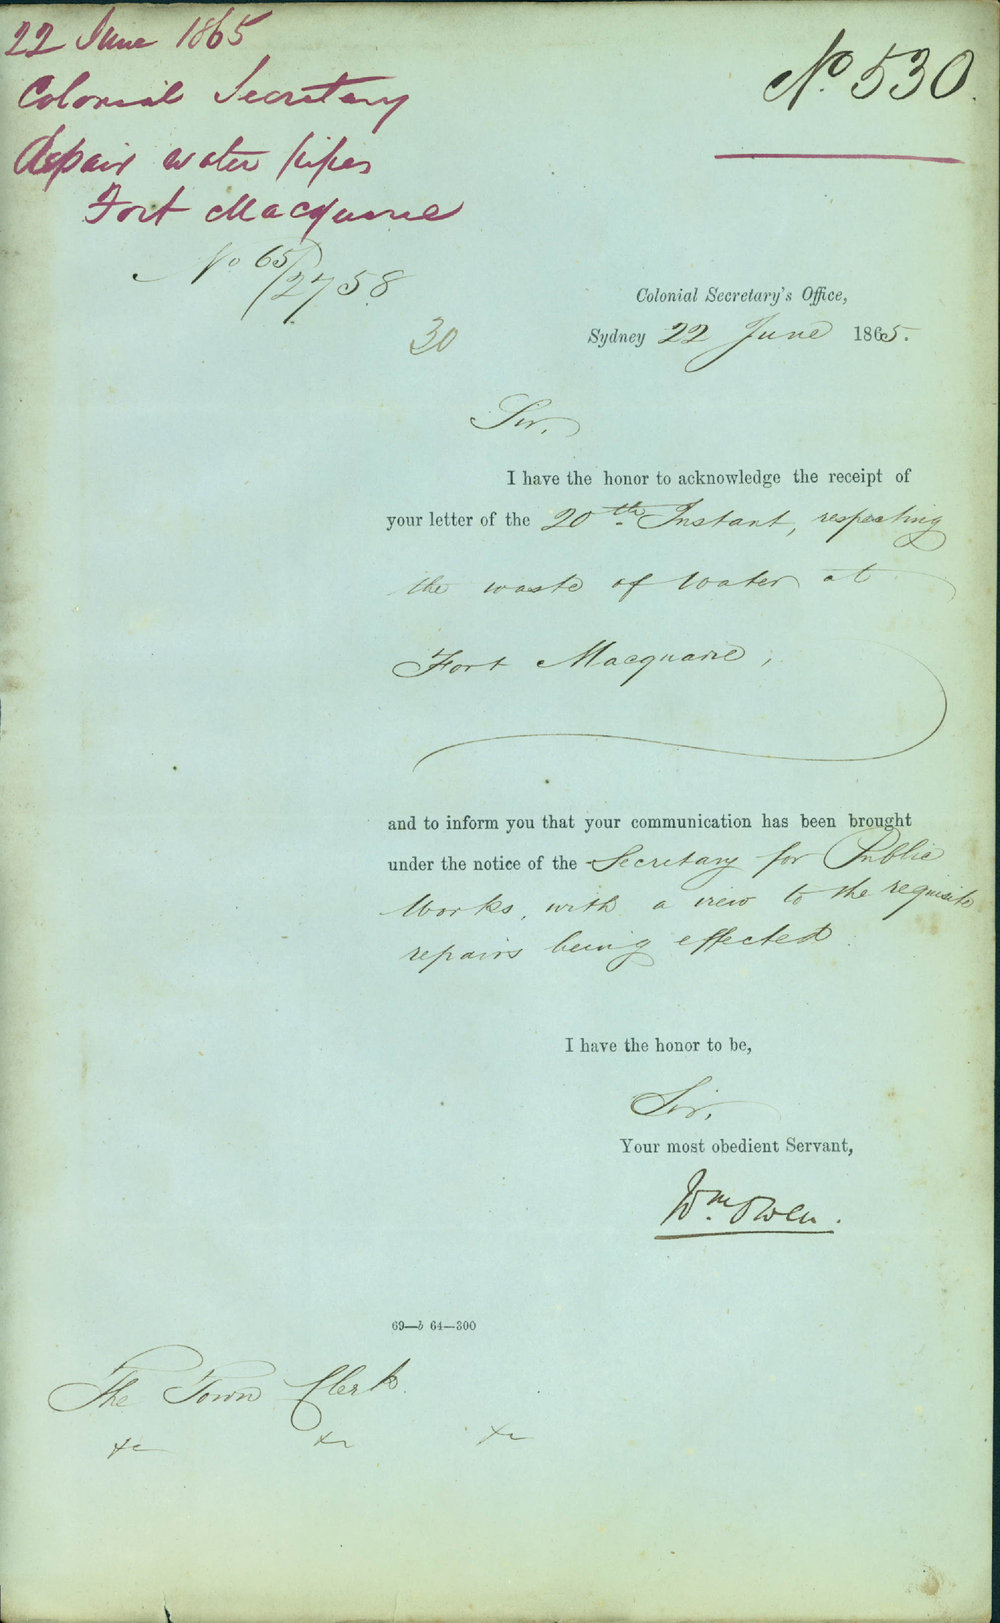 22 June 1865
Colonial Secretary
Repair water pipes
Fort Macquarie
No. 530
No 65/2758
30
Colonial Secretary's Office,
Sydney 22 June 1865.
Sir,
I have the honor to acknowledge the receipt of
your letter of the 20th. Instant, respecting
the waste of Water at
Fort Macquarie,
and to inform you that your communication has been brought
under the notice of the Secretary for Public
Works, with a view to the requisite
repairs being effected.
I have the honor to be,
Sir,
Your most obedient Servant,
Wm. Owen.
69—b 64—300
The Town Clerk
&c &c &c